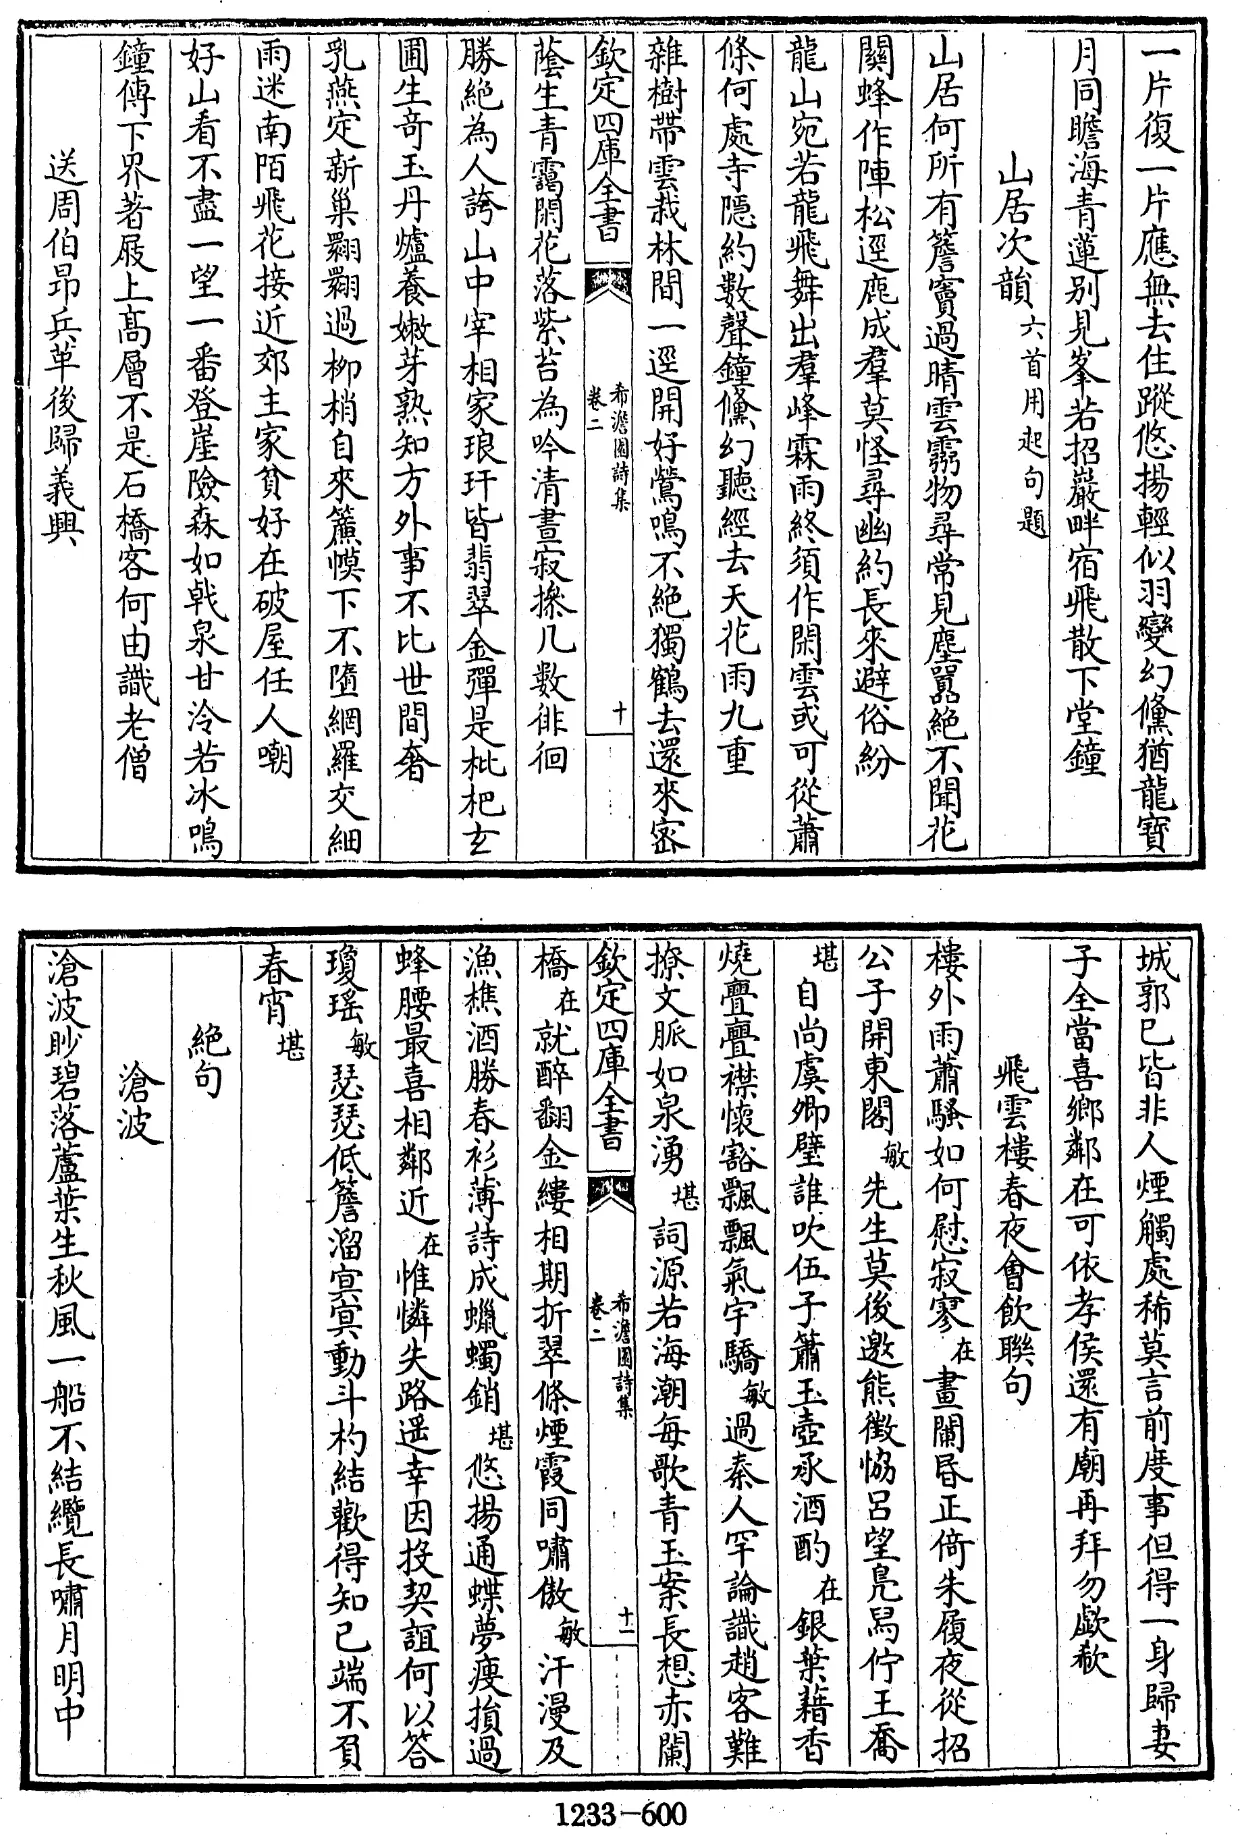 一片復一片應無去住蹤悠揚輕似羽變幻儵猶龍寶
月同瞻海青蓮别見峯若招巖畔宿飛散下堂鐘
山居次韻六首用起句題
山居何所有簷竇過晴雲霧物尋常見塵囂絶不聞花
關蜂作陣松逕鹿成羣莫怪尋幽約長來避俗紛
龍山宛若龍飛舞出羣峰霖雨終須作閑雲或可從蕭
條何處寺隱約數聲鐘儵幻聽經去天花雨九重
雜樹帶雲栽林間一逕開好鶯鳴不絶獨鶴去還來密
欽定四庫全書
希澹園詩集
卷二
十
蔭生青靄閑花落紫苔為吟清晝寂摻几數徘徊
勝絶為人誇山中宰相家琅玕皆翡翠金彈是枇杷玄
圃生竒玉丹爐養嫩芽熟知方外事不比世間奢
乳燕定新巢翾翾過柳梢自來簾幙下不墮網羅交細
雨迷南陌飛花接近郊主家貧好在破屋任人嘲
好山看不盡一望一番登崖險森如戟泉甘冷若冰鳴
鐘傳下界著屐上髙層不是石橋客何由識老僧
送周伯昂兵革後歸義興
城郭已皆非人煙觸處稀莫言前度事但得一身歸妻
子全當喜鄉鄰在可依孝侯還有廟再拜勿歔欷
飛雲樓春夜會飲聯句
樓外雨蕭騷如何慰寂寥在畫闌昏正倚朱履夜從招
公子開東閣敏先生莫後邀熊徵恊呂望鳧舄佇王喬
堪自尚虞卿璧誰吹伍子簫玉壺承酒酌在銀葉藉香
燒亹亹襟懷豁飄飄氣宇驕敏過秦人罕論識趙客難
撩文脈如泉湧堪詞源若海潮每歌青玉案長想赤闌
欽定四庫全書
希澹園詩集
卷二
十一
橋在就醉翻金縷相期折翠條煙霞同嘯傲敏汗漫及
漁樵酒勝春衫薄詩成蠟蠋銷堪悠揚通蝶夢瘦損過
蜂腰最喜相鄰近在惟憐失路遥幸因投契誼何以答
瓊瑶敏瑟瑟低簷溜㝠㝠動斗杓結歡得知已端不負
春宵堪
絶句
滄波
滄波眇碧落蘆葉生秋風一船不結纜長嘯月明中
1233-600